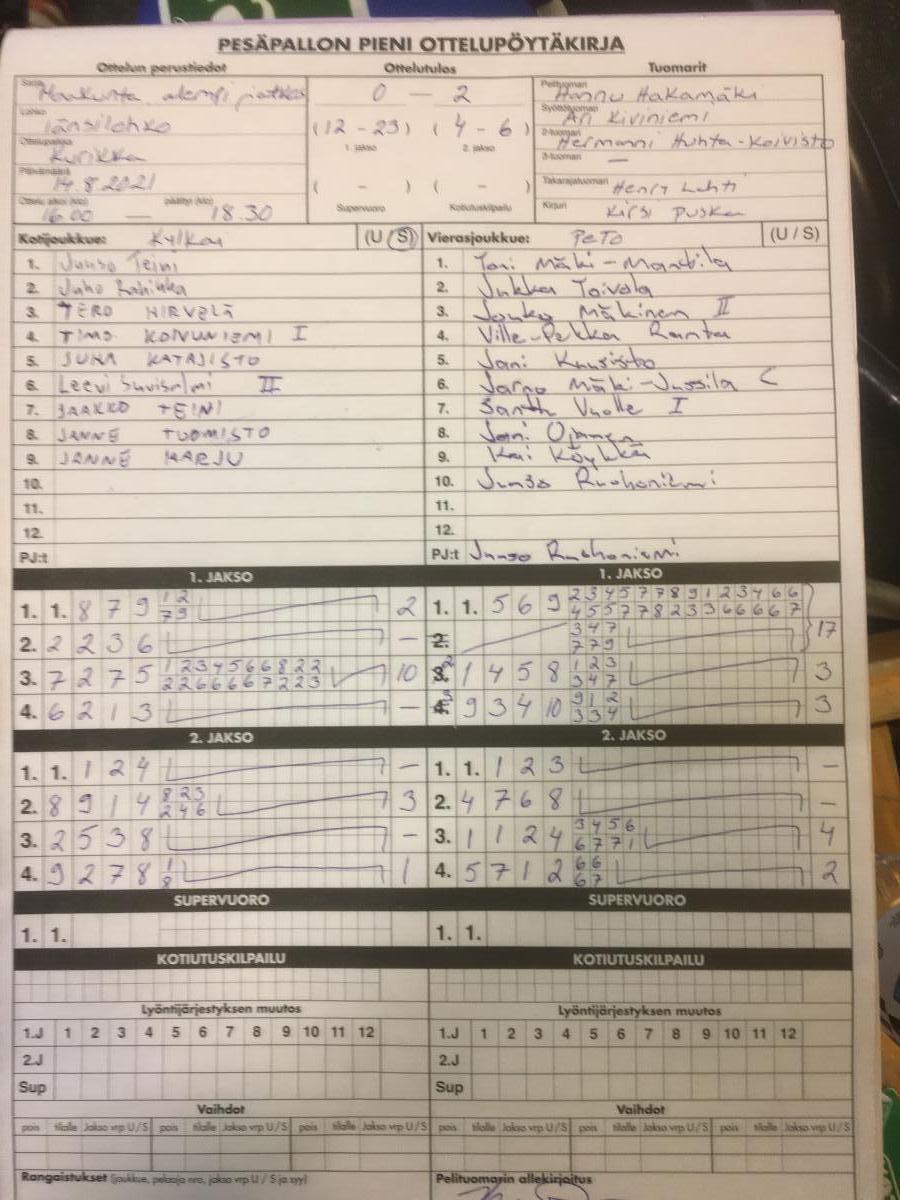 PESÄPALLON PIENI OTTELUPÖYTÄKIRJA
Ottelun perustiedot Ottelutulos Tuomarit
Sarja Maakunta alempi jatkos 0 — 2 Pelituomari Hannu Hakamäki
Lohko Länsilohko (12 - 23) (4 - 6) Syöttötuomari Ari Kiviniemi
Ottelupaikka Kurikka 1. jakso 2. jakso 2-tuomari Hermanni Huhta-Koivisto
3-tuomari —
Päivämäärä 14.8.2021 ( - ) ( - ) Takarajatuomari Henry Lahti
Ottelu alkoi (klo) 16.00 — päättyi (klo) 18.30 Supervuoro Kotiutuskilpailu Kirjuri Kirsi Puska
Kotijoukkue: KylKar (U / S) Vierasjoukkue: PeTo (U / S)
1. Juuso Teini 1. Toni Mäki-Mantila
2. Juho Rahikka 2. Jukka Toivola
3. TERO HIRVELÄ 3. Jouko Mäkinen II
4. TIMO KOIVUNIEMI I 4. Ville-Pekka Ranta
5. JUHA KATAJISTO 5. Jani Kuusisto
6. Leevi Suviselmi II 6. Jarno Mäki-Jussila C
7. JAAKKO TEINI 7. Santtu Vuolle I
8. JANNE TUOMISTO 8. Joni
9. JANNE HARJU 9. Kai Köykkä
10. 10. Juuso Ruohoniemi
11. 11.
12. 12.
PJ:t PJ:t Juuso Ruohoniemi
1. JAKSO 1. JAKSO
1. 1. 8 7 9 1 2 2 1. 1. 5 6 9 2 3 4 5 7 7 8 9 1 2 3 4 6 6
7 9 4 5 5 7 7 8 2 3 3 6 6 6 6 7
2. 2 2 3 6 — 2. 3 4 7 17
7 7 9
3. 7 2 7 5 1 2 3 4 5 6 6 8 2 2 10 3. 2 1 4 5 8 1 2 3 3
2 2 6 6 6 6 7 2 2 3 3 4 7
4. 6 2 1 3 — 4. 3 9 3 4 10 9 1 2 3
3 3 4
2. JAKSO 2. JAKSO
1. 1. 1 2 4 — 1. 1. 1 2 3 —
2. 8 9 1 4 8 2 3 3 2. 4 7 6 8 —
2 4 6
3. 2 5 3 8 — 3. 1 1 2 4 3 4 5 6 4
6 7 7 1
4. 9 2 7 8 1 1 4. 5 7 1 2 6 6 2
8 6 7
SUPERVUORO SUPERVUORO
1. 1. 1. 1.
KOTIUTUSKILPAILU KOTIUTUSKILPAILU
Lyöntijärjestyksen muutos Lyöntijärjestyksen muutos
1.J 1 2 3 4 5 6 7 8 9 10 11 12 1.J 1 2 3 4 5 6 7 8 9 10 11 12
2.J 2.J
Sup Sup
Vaihdot Vaihdot
pois tilalle Jakso vrp U/S pois tilalle Jakso vrp U/S pois tilalle Jakso vrp U/S pois tilalle Jakso vrp U/S pois tilalle Jakso vrp U/S pois tilalle Jakso vrp U/S
Rangaistukset (joukkue, pelaaja nro, jakso vrp U / S ja syy) Pelituomarin allekirjoitus